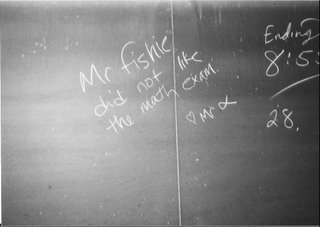 Mr fishie
did not like
the math exam.
♡ Mr α
Ending
8:5
28.